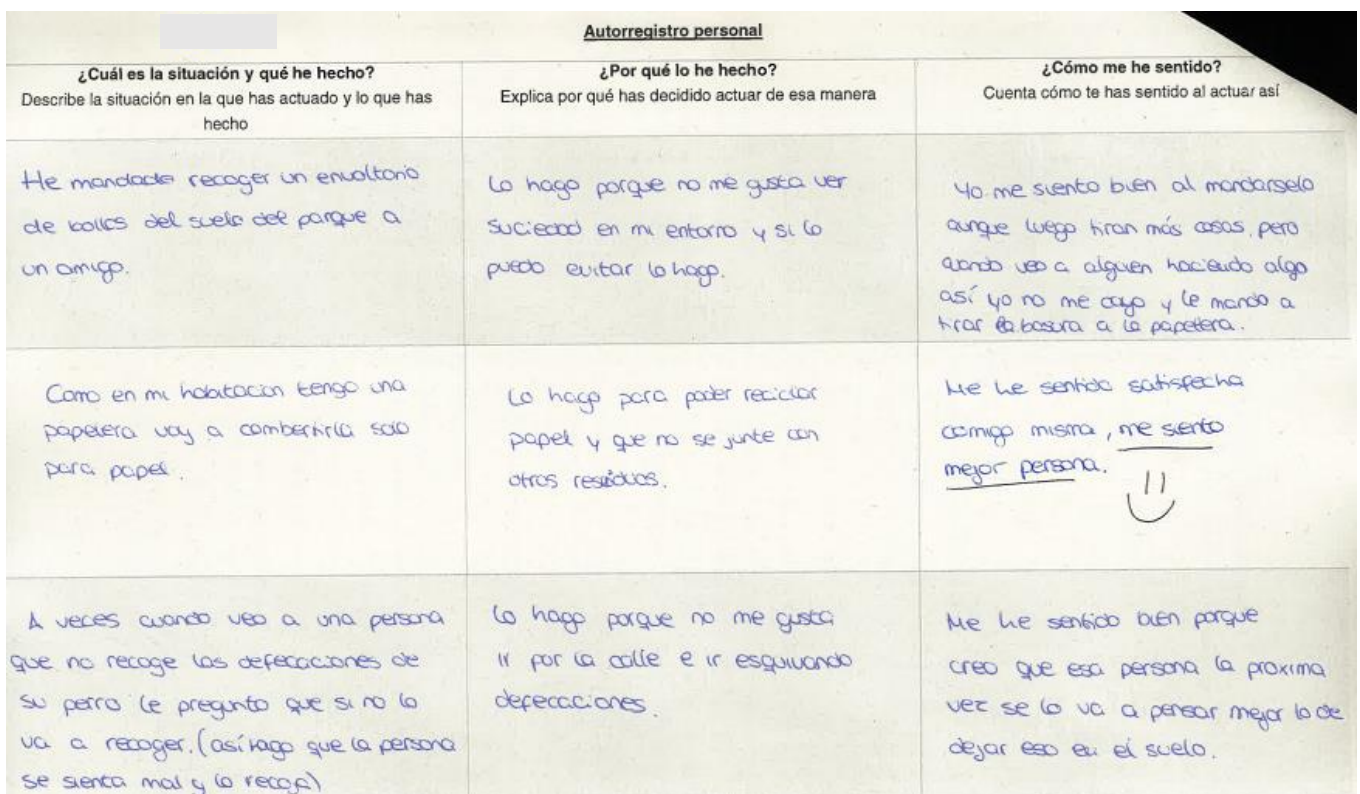 Autorregistro personal
¿Cuál es la situación y qué he hecho?
Describe la situación en la que has actuado y lo que has
hecho
¿Por qué lo he hecho?
Explica por qué has decidido actuar de esa manera
¿Cómo me he sentido?
Cuenta cómo te has sentido al actuar así
He mandado recoger un envoltorio
de bollos del suelo del parque a
un amigo.
Lo hago porque no me gusta ver
suciedad en mi entorno y si lo
puedo evitar lo hago.
Yo me siento bien al mandarselo
aunque luego tiran más cosas, pero
cuando veo a alguien haciendo algo
así yo no me cayo y le mando a
tirar la basura a la papelera.
Como en mi habitacion tengo una
papelera voy a combertirla solo
para papel.
Lo hago para poder reciclar
papel y que no se junte con
otros residuos.
Me he sentido satisfecha
comigo misma, me siento
mejor persona.
A veces cuando veo a una persona
que no recoge las defecaciones de
su perro le pregunto que si no lo
va a recoger. (así hago que la persona
se sienta mal y lo recoja)
Lo hago porque no me gusta
ir por la calle e ir esquivando
defecaciones.
Me he sentido bien porque
creo que esa persona la proxima
vez se lo va a pensar mejor lo de
dejar eso en el suelo.